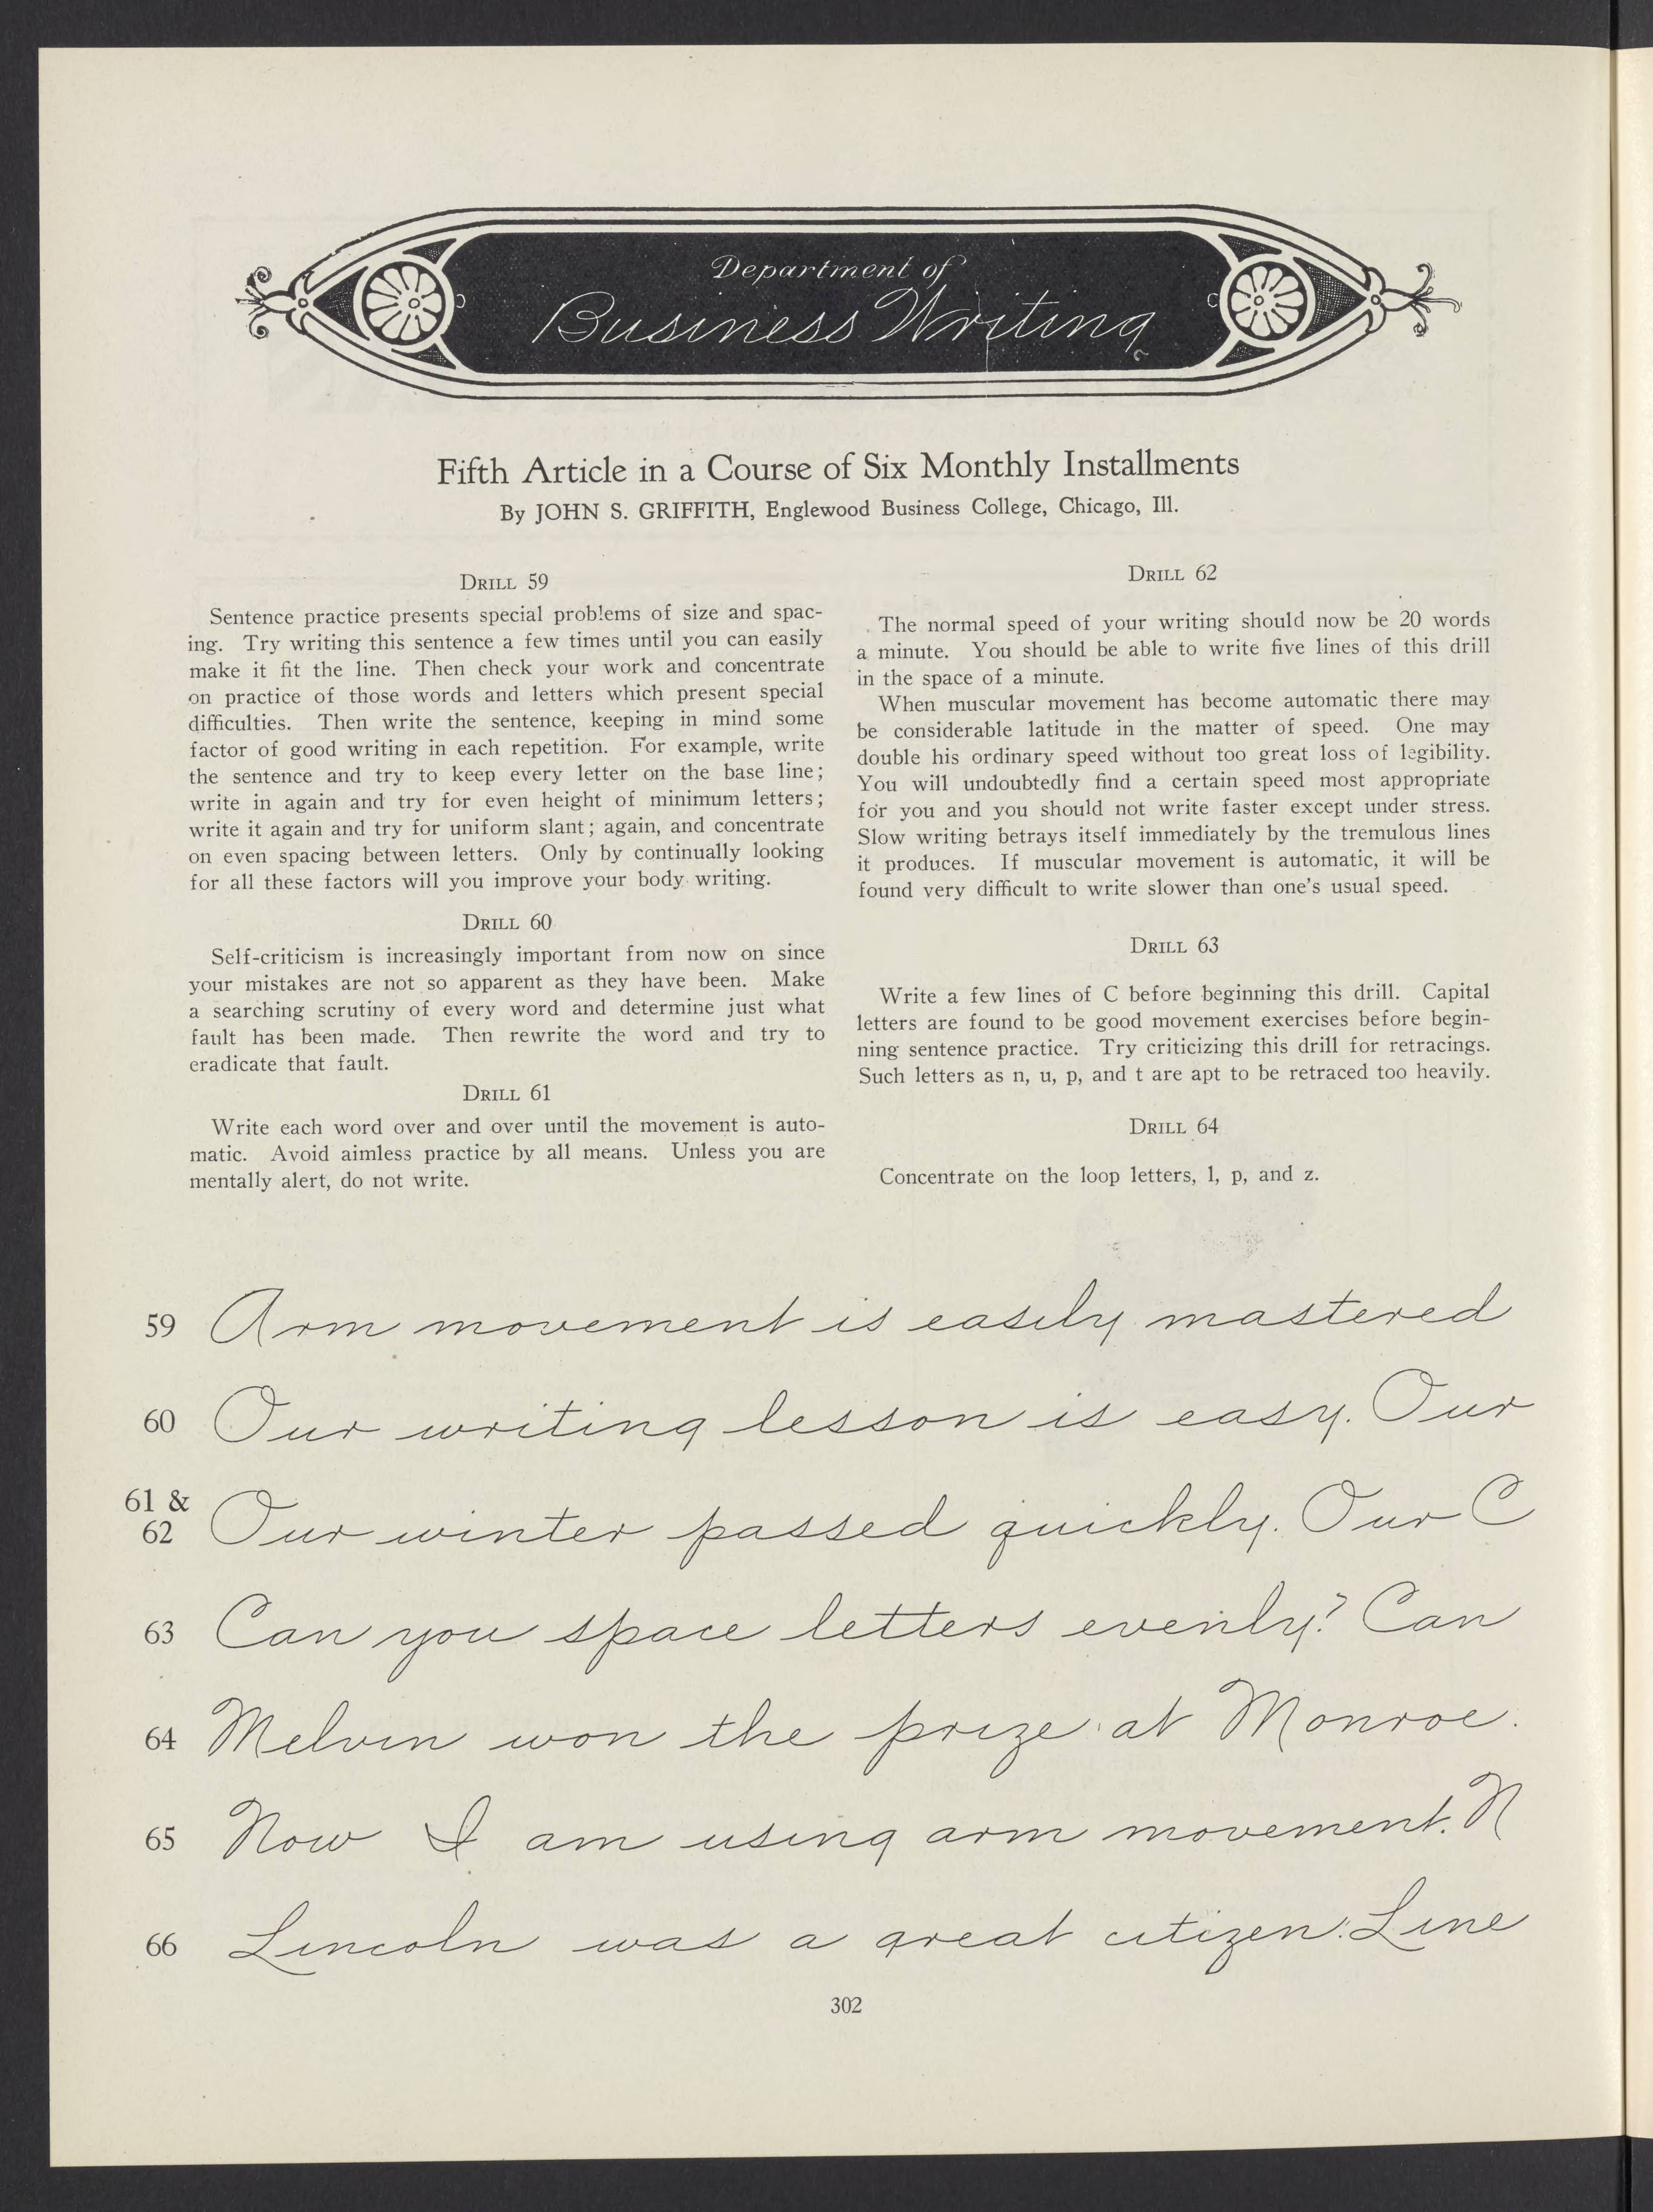 Department of
Business Writing
Fifth Article in a Course of Six Monthly Installments
By JOHN S. GRIFFITH, Englewood Business College, Chicago, Ill.
DRILL 59
Sentence practice presents special problems of size and spac-
ing. Try writing this sentence a few times until you can easily
make it fit the line. Then check your work and concentrate
on practice of those words and letters which present special
difficulties. Then write the sentence, keeping in mind some
factor of good writing in each repetition. For example, write
the sentence and try to keep every letter on the base line;
write in again and try for even height of minimum letters;
write it again and try for uniform slant; again, and concentrate
on even spacing between letters. Only by continually looking
for all these factors will you improve your body writing.
DRILL 60
Self-criticism is increasingly important from now on since
your mistakes are not so apparent as they have been. Make
a searching scrutiny of every word and determine just what
fault has been made. Then rewrite the word and try to
eradicate that fault.
DRILL 61
Write each word over and over until the movement is auto-
matic. Avoid aimless practice by all means. Unless you are
mentally alert, do not write.
DRILL 62
The normal speed of your writing should now be 20 words
a minute. You should be able to write five lines of this drill
in the space of a minute.
When muscular movement has become automatic there may
be considerable latitude in the matter of speed. One may
double his ordinary speed without too great loss of legibility.
You will undoubtedly find a certain speed most appropriate
for you and you should not write faster except under stress.
Slow writing betrays itself immediately by the tremulous lines
it produces. If muscular movement is automatic, it will be
found very difficult to write slower than one's usual speed.
DRILL 63
Write a few lines of C before beginning this drill. Capital
letters are found to be good movement exercises before begin-
ning sentence practice. Try criticizing this drill for retracings.
Such letters as n, u, p, and t are apt to be retraced too heavily.
DRILL 64
Concentrate on the loop letters, l, p, and z.
59 Arm movement is easily mastered
60 Our writing lesson is easy. Our
61 &
62 Our winter passed quickly. Our C
63 Can you space letters evenly? Can
64 Melvin won the prize at Monroe.
65 Now I am using arm movement. N
66 Lincoln was a great citizen. Line
302